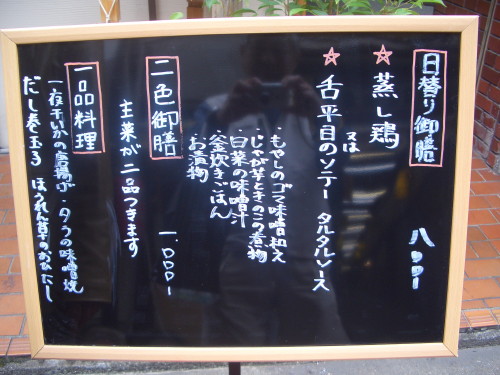 日替り御膳 八〇〇ー
☆蒸し鶏
又は
☆舌平目のソテー タルタルソース
・もやしのゴマ味噌和え
・じゃが芋ときのこの煮物
・白菜の味噌汁
・釜炊きごはん
・お漬物
二色御膳 一、〇〇〇ー
主菜が二品つきます
一品料理
一夜干いかの唐揚げ・タラの味噌焼
だし巻玉子 ほうれん草のおひたし